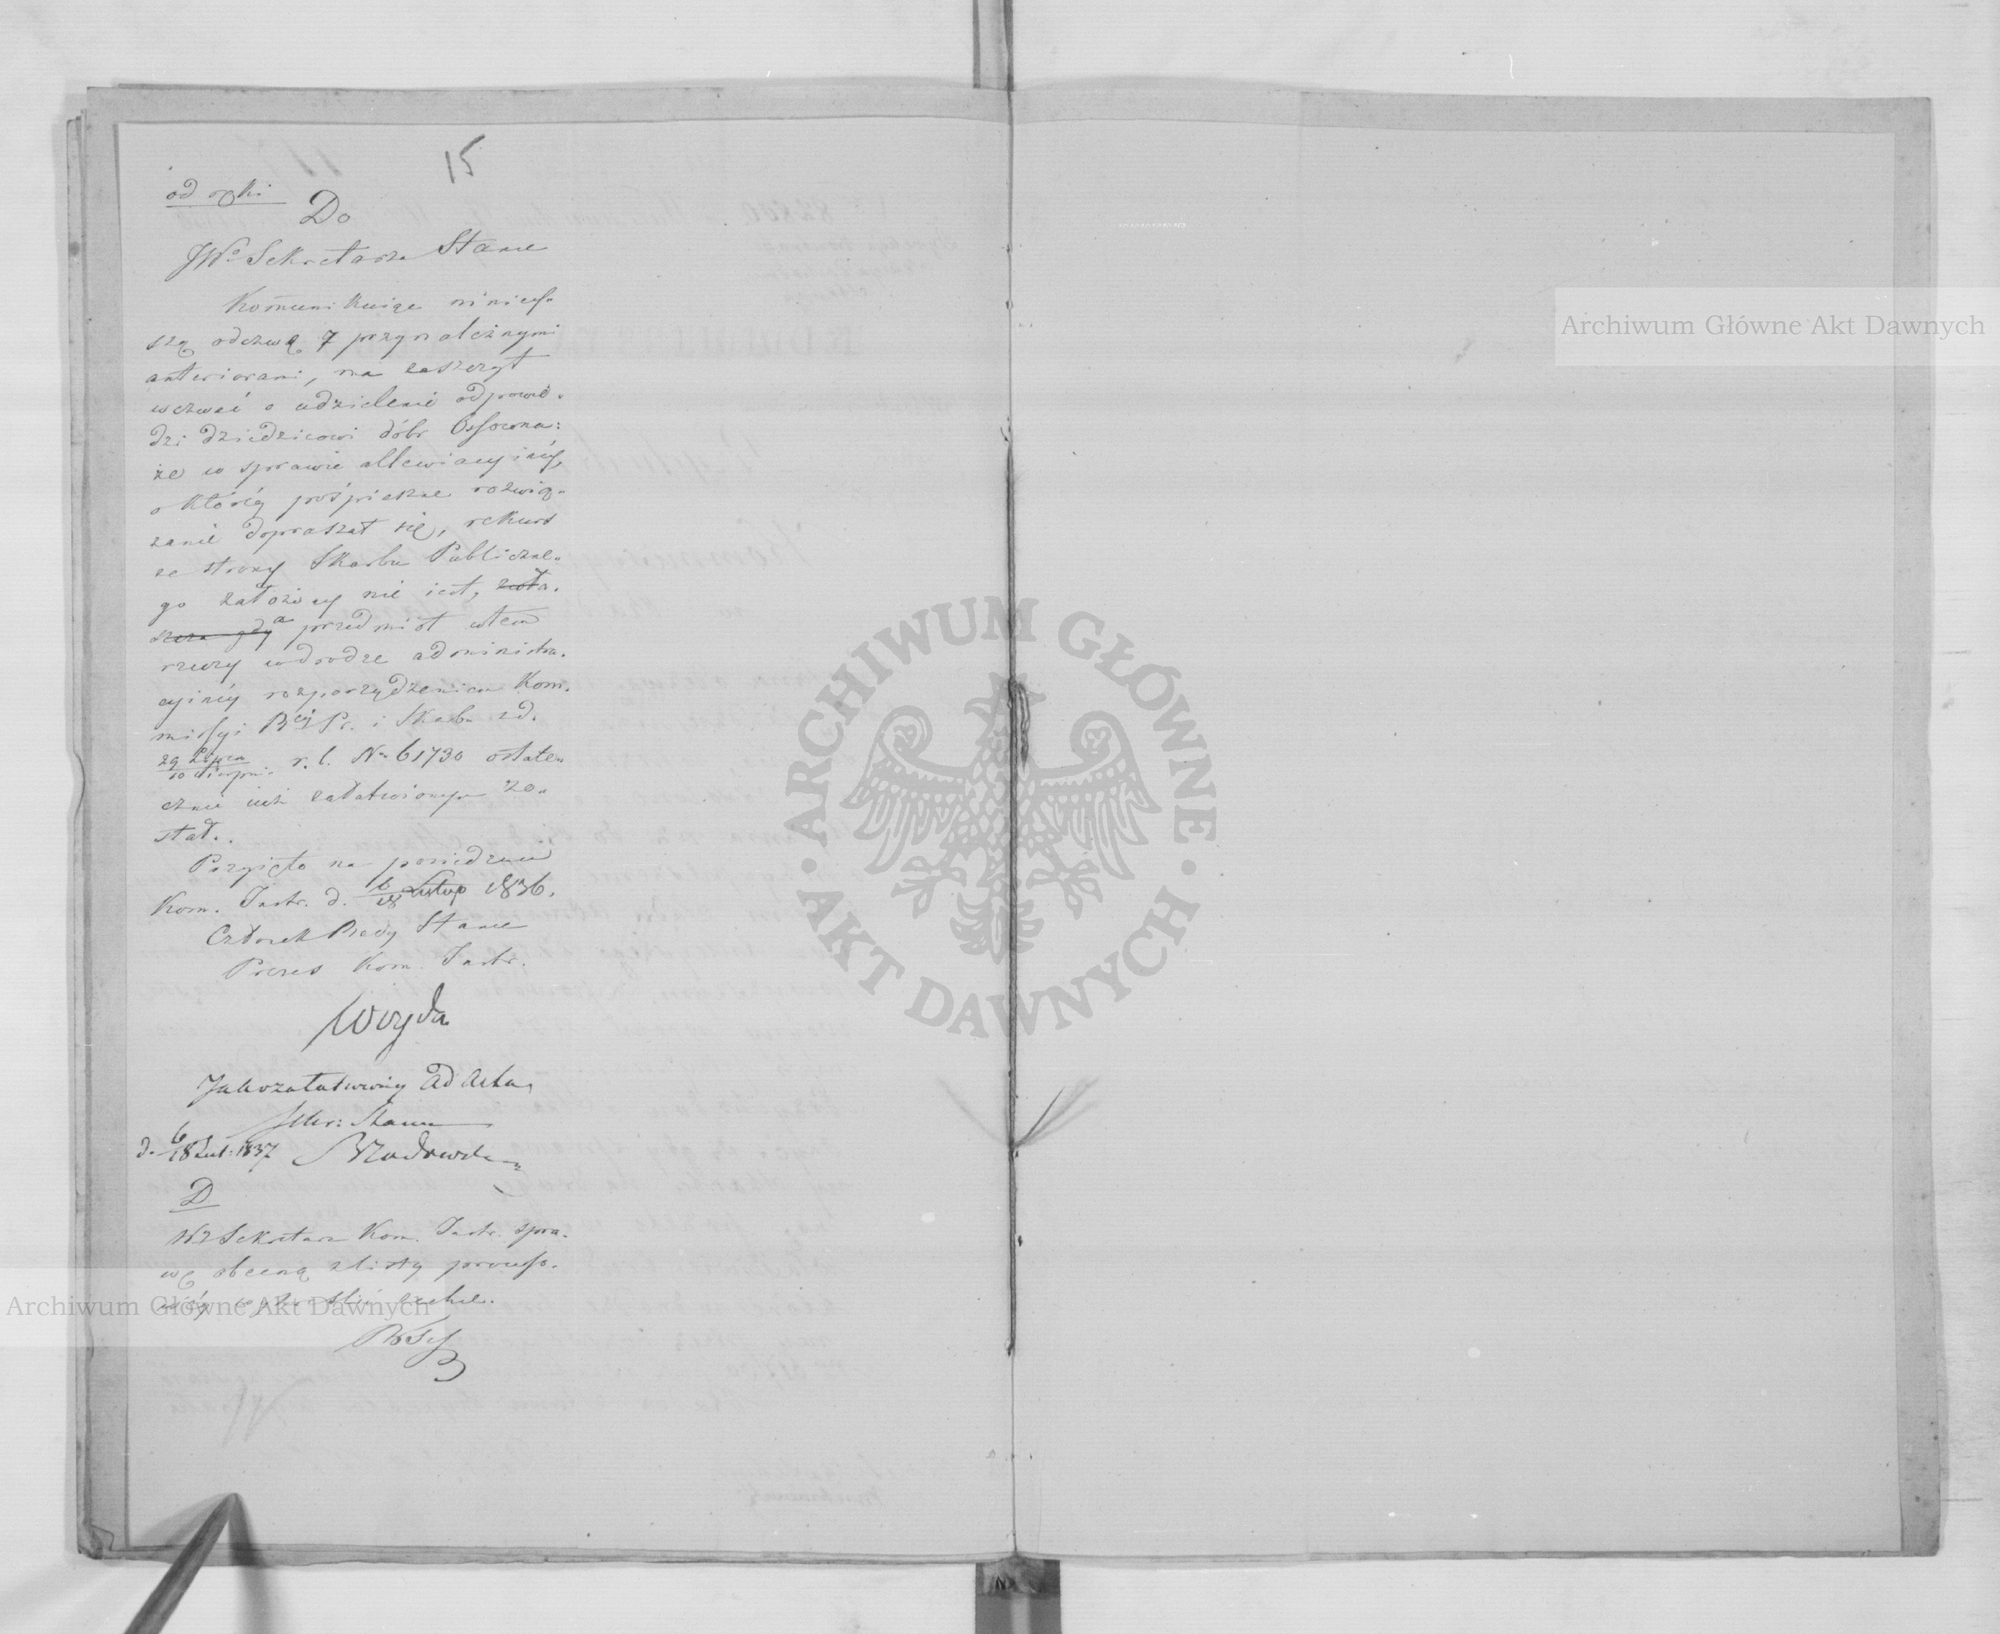 15
od ręki
Do
JWo Sekretarza Stanu
Kom̄unikuiąc ninieys-
szą odezwę z przynależnymi
anteriorami, ma zaszczyt
wezwać o udzielenie odpowie-
dzi dziedzicowi dóbr Ossowna:
że w sprawie allewiacyinéy,
o któréy pośpieszne rozwią-
zanie dopraszał się, rekurs
ze strony Skarbu Publiczne-
go założony nie iest, zwła-
szcza gdy a przedmiot w tem
rzeczy w drodze administra-
cyinéy rozporządzeniem Kom-
missyi Rcy Pr. i Skarbu z d.
29 Lipca
10 Sierpni. r. b. No 61730 ostate-
cznie iuż załatwionym zo-
stał.
Przyięto na posiedzeniu
Kom. Instr. d. 6/18 Listop 1836.
Członek Rady Stanu
Prezes Kom. Instr.
Woyda
Jako załatwiony ad Acta
Sekr: Stanu
d. 6/18 Lut: 1837
D
WJ Sekretarz Kom. Instr. spra-
wę obecną z listy processo-
wéy wykreślić zechce.
Archiwum Główne Akt Dawnych
Archiwum Główne Akt Dawnych
ARCHIWUM GŁÓWNE · AKT DAWNYCH ·